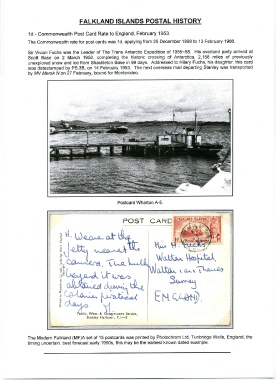 FALKLAND ISLANDS POSTAL HISTORY
1d - Commonwealth Post Card Rate to England, February 1953.
The Commonwealth rate for post cards was 1d, applying from 26 December 1898 to 13 February 1960.
Sir Vivian Fuchs was the Leader of The Trans Antarctic Expedition of 1955-58. His overland party arrived at
Scott Base on 2 March 1958, completing the historic crossing of Antarctica, 2,158 miles of previously
unexplored snow and ice from Shackleton Base in 99 days. Addressed to Hilary Fuchs, his daughter, this card
was datestamped by PS.3B, on 14 February 1953. The next overseas mail departing Stanley was transported
by MV on 27 February, bound for Montevideo.
Postcard Wharton A-5.
POST CARD
H. We are at the
jetty nearest the
camera. The hulk
beyond it was
abandoned during the
days
Miss H. Fuchs
Walton Hospital
Walton on Thames
Surrey
ENGLAND.
Stanley Harbour, F.I.-5
The Modern Falkland (MF) set of 15 postcards was printed by Photochrom Ltd, Tunbridge Wells, England, the
timing uncertain, best forecast early 1950s, this may be the earliest known dated example.